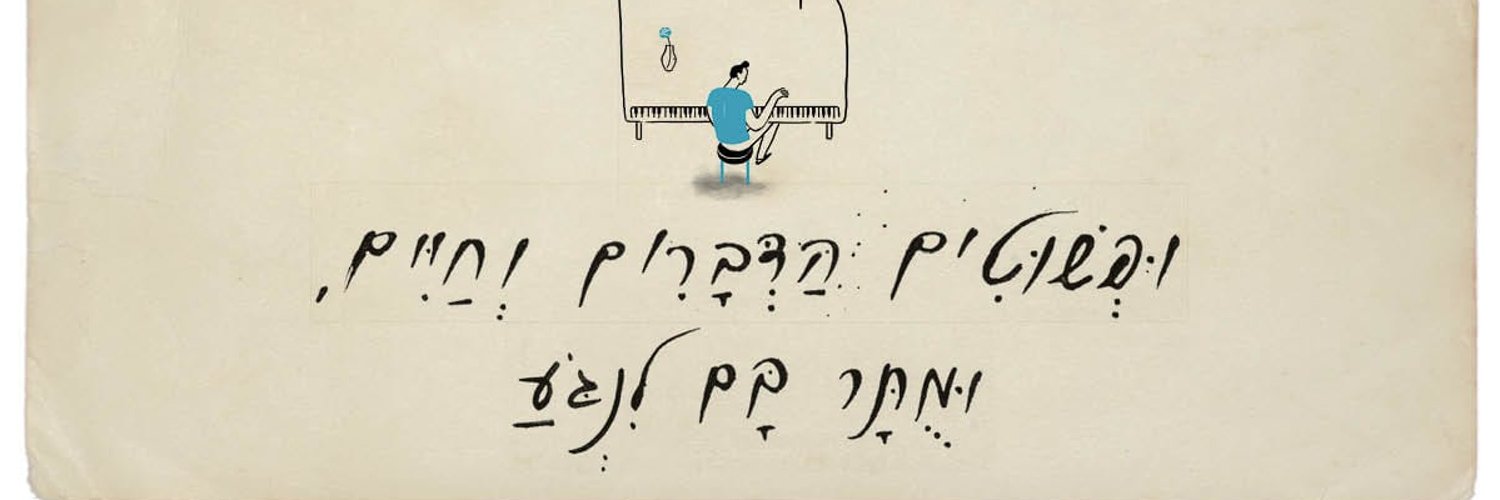 וּפְשׁוּטִים הַדְּבָרִים וְחַיִּים,
וּמֻתָּר בָּם לִנְגֹּעַ